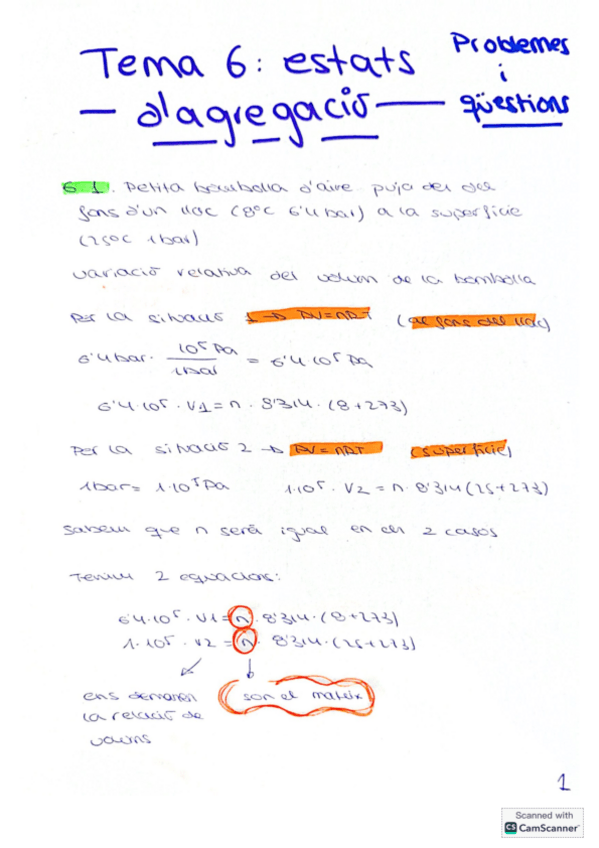 Tema 6: estats
Problemes
i
qüestions
— d'agregació —
6 1. Petita bombolla d'aire puja des del
fons d'un llac (8ºC 6'4 bar) a la superfície
(25ºC 1 bar)
variació relativa del volum de la bombolla
Per la situació 1 → PV=nRT (al fons del llac)
6'4 bar · 10⁵ Pa / 1 bar = 6'4 10⁵ Pa
6'4·10⁵ · V1 = n · 8'314 · (8+273)
Per la situació 2 → PV=nRT (superfície)
1 bar = 1·10⁵ Pa 1·10⁵ · V2 = n · 8'314 (25+273)
Sabem que n serà igual en els 2 casos
Tenim 2 equacions:
6'4·10⁵ · V1 = n · 8'314 · (8+273)
1·10⁵ · V2 = n · 8'314 · (25+273)
ens demanen
la relació de
volums
són el mateix
1
Scanned with
CS CamScanner